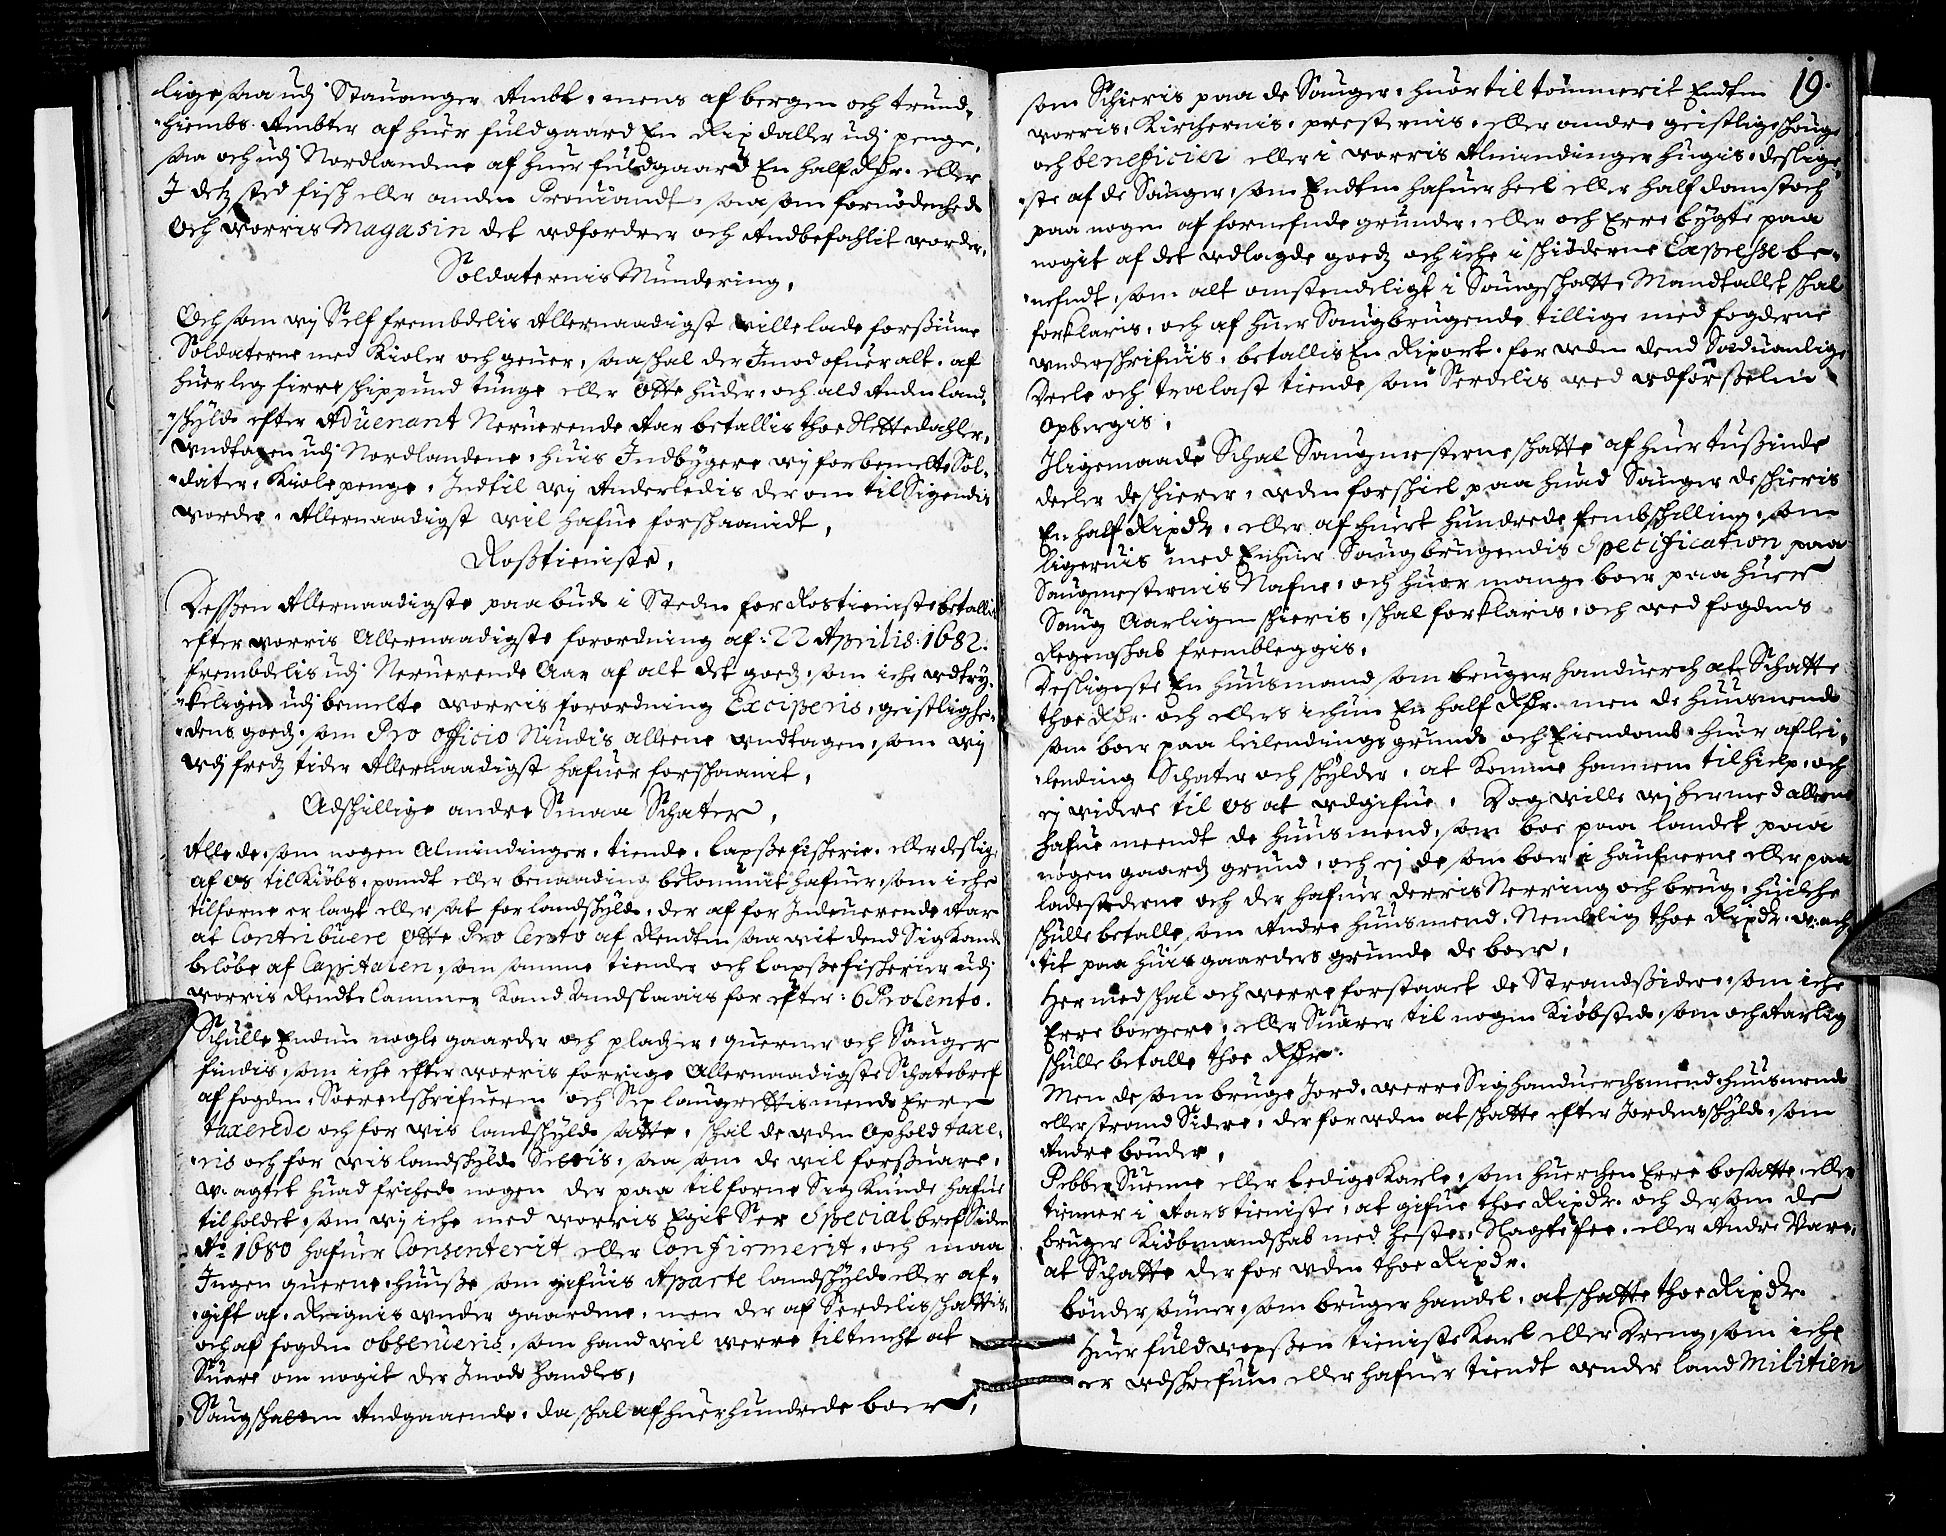 lige saa udj Stauanger Ambt, mens af bergen och trund,
hiembs Ambter af huer fuldgaard En Rix daller udj penge,
saa och udj Nordlandene af huer fuldgaard En half Rdr. eller
I detz sted fisk eller anden Prouiandt, saa som fornødenhed
Och worris Magasin det udfordrer och Andbefahlit worder,
Soldaternis Mundering,
Och som wij Self frembdelis Allernaadigst wille lade forsiune
Soldaterne med Kioler och geuer, saa skal der Imod ofuer alt, af
huer leg firre skippund tunge eller Otte huder, och ald Anden land,
skyld efter Aduenant Neruerende Aar betallis thoe Slette dahler,
undtagen udj Nordlandene, huis Indbygere wij forbemelte Sol,
dater, Kiole penge, Indtil wij Anderledis der om til Sigendis
worder, Allernaadigst wil hafue forskaanidt,
Rosztieniste,
Desszen Allernaadigste paabud i Steden for Rostieniste betallis
efter worris Allernaadigste forordning af: 22 Aprilis: 1682.
frembdelis udj Neruerende Aar af alt det goedz, som iche udtry,
keligen udj bemelte worris forordning Exciperis, geistlighe,
dens goedz, som Pro Officio Niudis alleene undtagen, som wij
udj fredz tider Allernaadigst hafuer forskaanit,
Adskillige andre Smaa Schater,
Alle de, som nogen Almindinger, tiende, Lapszefiskerie, eller deslige
af os til Kiøbs, pandt eller benaading bekommit hafuer, som iche
tilforne er lagt eller sat for landskyld, der af for Indeuerende Aar
at Contribuere Otte Pro Cento af Rendten saa wit dend Sig Kand
beløbe af Capitalen, som samme tiender och Lapszefiskerier udj
worris Rendte Cammer Kand Andslaais for efter: 6 Pro Cento.
Schulle Endnu nogle gaarder och pladzer, querner och Sauger
findis, som iche efter worris forrige Allernaadigste Schatebref
af fogden, Soerenskrifueren och Sex laugrettismend Erre
taxerede och for wis landskyld satte, skal de uden Ophold taxe,
ris och for wis landskyld Settis, saa som de wil forsuare,
u-agtet huad frihed nogen der paa tilforne Sig Kunde hafue
tilholdet, som wij iche med worris Egit Ser Special bref Siden
Ao 1680 hafuer Consenterit eller Confirmerit, och maa
Ingen querne, huusze som gifuis Aparte landskyld eller af,
gift af, Reignis under gaardene, men der af Serdelis skattis,
och af fogden obserueris, som hand wil werre tiltencht at
Suare om nogit der Imod handles,
Saugskatten Andgaaende, da skal af huer hundrede boer,
19.
som Schieris paa de Sauger, huor til tømmerit Endten
worris, Kirchernis, presternis, eller andre geistlige schouge
och beneficier eller i worris Almindinger hugis, deslige,
ste af de Sauger, som Endten hafuer heel eller half damstoch
paa nogen af fornefnde grunde, eller och Erre bygte paa
nogit af det udlagde goedz och iche i skiøderne Expresse be,
nefndt, som alt omstendeligt i Saugskatte Mandtallet skal
forklaris, och af huer Saugbrugende tillige med fogderne
underskrifuis, betallis En Rixort, foruden dend Sæduanlige
Deele och tralast tiende, som Serdelis wed udførszelen
Opbergis,
Iligemaade Schal Saugmesterne skatte af huer tuszinde
deeler de skierer, uden forskiel paa huad Sauger de skieris
En half Rixdr. eller af huert hundrede fembskilling, som
ligeruis med Enhuer Saugbrugendis Specification paa
Saugmesternis Nafne, och huor mange boer paa huer
Saug Aarligen skieris, skal forklaris, och wed fogdens
Regenskab frembleggis,
Desligeste En huusmand som bruger handuerch at Schatte
thoe Rdr. och ellers ichun En half Rdr. men de huusmend
som boer paa leilendings grund och Eiendomb, huor af lei,
lending Schater och skylder, at komme hannem til hielp, och
ej widere til os at udgifue, Dog wille wij hermed alleene
hafue meendt de huusmend, som boe paa landet paa
nogen gaardz grund, och ej de som boer i haufnerne eller paa
ladestederne och der hafuer derris Nerring och brug, huilche
skulle betalle som Andre huusmend, Nemblig thoe Rixdr. u-ach,
tit paa huis gaarders grunde de boer,
Hermed skal och werre forstaaet de Strandsidere, som iche
Erre borgere, eller Suarer til nogen Kiøbsted, som och Aarlig
skulle betalle thoe Rdr.
Men de som bruge Jord, werre Sig handuerchsmend, huusmend
eller strand Sidere, der foruden at skatte efter Jordens skyld, som
Andre bønder,
Pebber Suenne eller Ledige Karle, som huerchen Erre bosatte, eller
tienner i Aars tieniste, at gifue thoe Rixdr. och dersom de
bruger Kiøbmandskab med heste, Slagte fee, eller Andre Vare,
at Schatte der foruden thoe Rixdr.
bønder sønner, som bruger handel, at skatte thoe Rixdr.
Huer fuldwoxszen tieniste Karl eller Dreng, som iche
er udskrefuen eller hafuer tient under land Militien